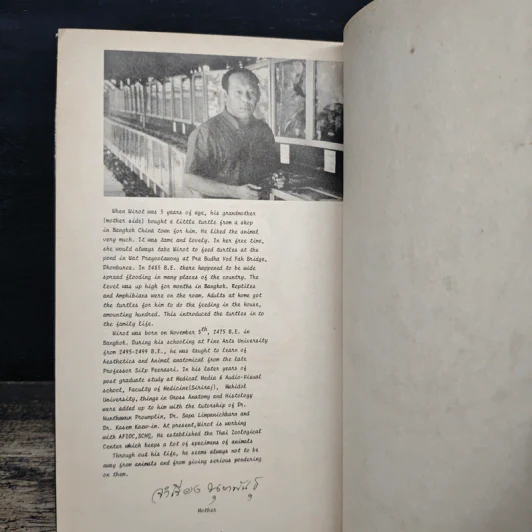 When Wirot was 5 years of age, his grandmother
(mother side) bought a little turtle from a shop
in Bangkok China town for him. He liked the animal
very much. It was tame and lovely. In her free time,
she would always take Wirot to feed turtles at the
pond in Wat Prayoolawong at Pra Budha Yod Fah Bridge,
Dhonburee. In 2485 B.E. there happened to be wide
spread flooding in many places of the country. The
level was up high for months in Bangkok. Reptiles
and Amphibians were on the roam. Adults at home got
the turtles for him to do the feeding in the house,
amounting hundred. This introduced the turtles in to
the family life.
Wirot was born on November 5th, 2475 B.E. in
Bangkok. During his schooling at Fine Arts University
from 2495-2499 B.E., he was taught to learn of
Aesthetics and Animal anatomical from the late
Professor Silp Peerasri. In his later years of
post graduate study at Medical Media & Audio-Visual
school, Faculty of Medicine(Siriraj), Mahidol
University, things in Gross Anatomy and Histology
were added up to him with the tutorship of Dr.
Nunthawun Proumplin, Dr. Sapa Limpanichkarn and
Dr. Kasem Kaeo-in. At present, Wirot is working
with He established the Thai Zoological
Center which keeps a lot of specimens of animals
Through out his life, he seems always not to be
away from animals and from giving serious pondering
on them.
Mother